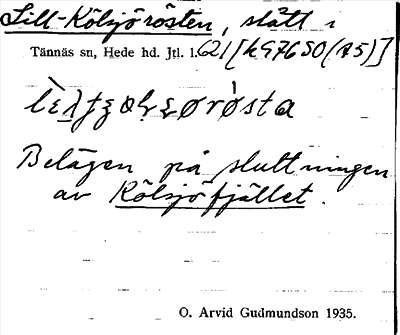 Lill-Kölsjörösten, slått i
Tännäs sn, Hede hd. Jtl. l.621[k97650(A5)]
Belägen på sluttningen
av Kölsjöfjället.
O. Arvid Gudmundson 1935.